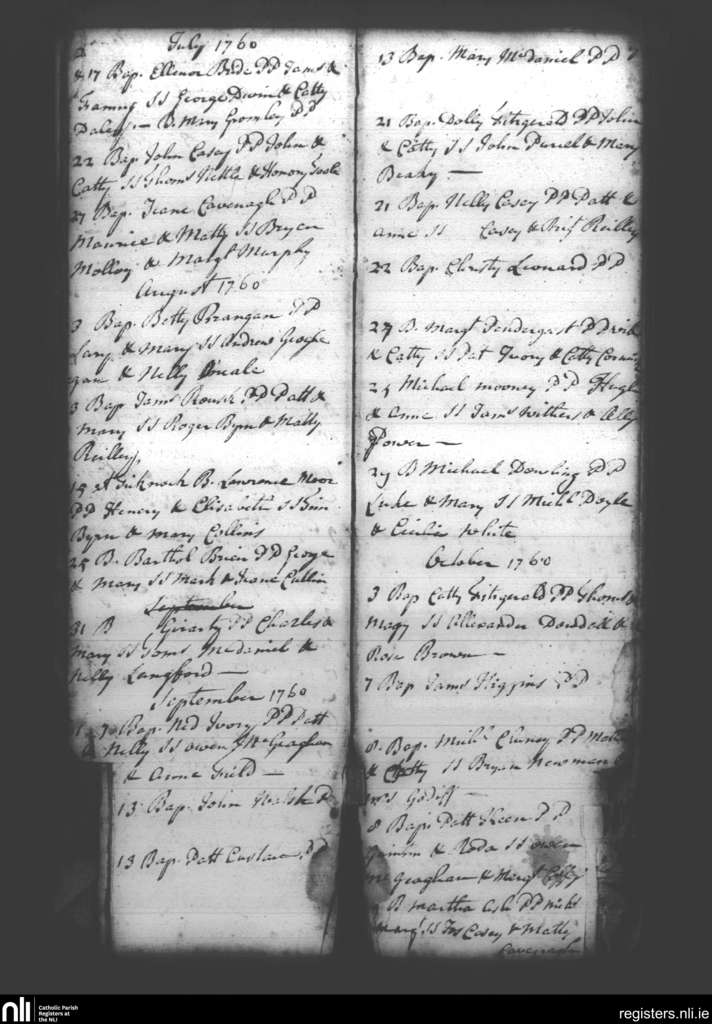 July 1760
17 Bap. Ellenor Bride PP James &
SS George & Catty
Daley — B. Mary Gromley PP
22 Bap. John Casey PP John &
Catty SS Thoms Nettle & Honory Toole
27 Bap. Jeane Cavenagh PP
Maurice & Matty SS Bryan
Molloy & Margt Murphy
August 1760
3 Bap. Betty Brangan PP
Lary & Mary SS Andrew Geoghe
gan & Nelly
3 Bap Jams Rourke PP Patt &
Mary SS Roger Byrn & Matty
Reilley
15 at B. Lawrence Moor
PP Henery & Elisabeth SS
Byrn & Mary Collins
25 B. Barthol Brien PP George
& Mary SS Mark & Jeane Cullin
September
31 B Girarty PP Charles &
Mary SS Jams McDaniel &
Nelly Langford —
September 1760
7 Bap. Ned Ivory PP Patt
& Nelly SS Owen McGeaghan
& Anne Field —
13 Bap. John Walsh P
13 Bap. Patt Eustace PP
13 Bap. Mary McDaniel PP
21 Bap. Dolly Fitzgerald PP John
& Catty SS John Purcel & Mary
Beahy —
21 Bap. Nelly Casey PP Patt &
Anne SS Casey & Reilley
22 Bap. Christy Leonard PP
B. Margt Pendergast PP
& Catty SS Pat Ivory & Catty
25 Michael Mooney PP Hugh
& Anne SS Jams Withers & Ally
Power —
29 B Michael Dowling PP
Luke & Mary SS Michl Doyle
& Cicilia White
October 1760
3 Bap Catty Fitzgerald PP Thoms &
Magy SS Allexander Dowdell &
Rose Brown —
7 Bap Jams Higgins PP
8. Bap. Michl PP
& Catty SS Bryan Newman
Mrs —
8 Bap. Patt Keen PP
& Roda SS Owen
McGeaghan & Margt
B Martha Ash PP Michl
Mary SS Casey & Matty
Cavenagh
nli
Catholic Parish
Registers at
the NLI
registers.nli.ie